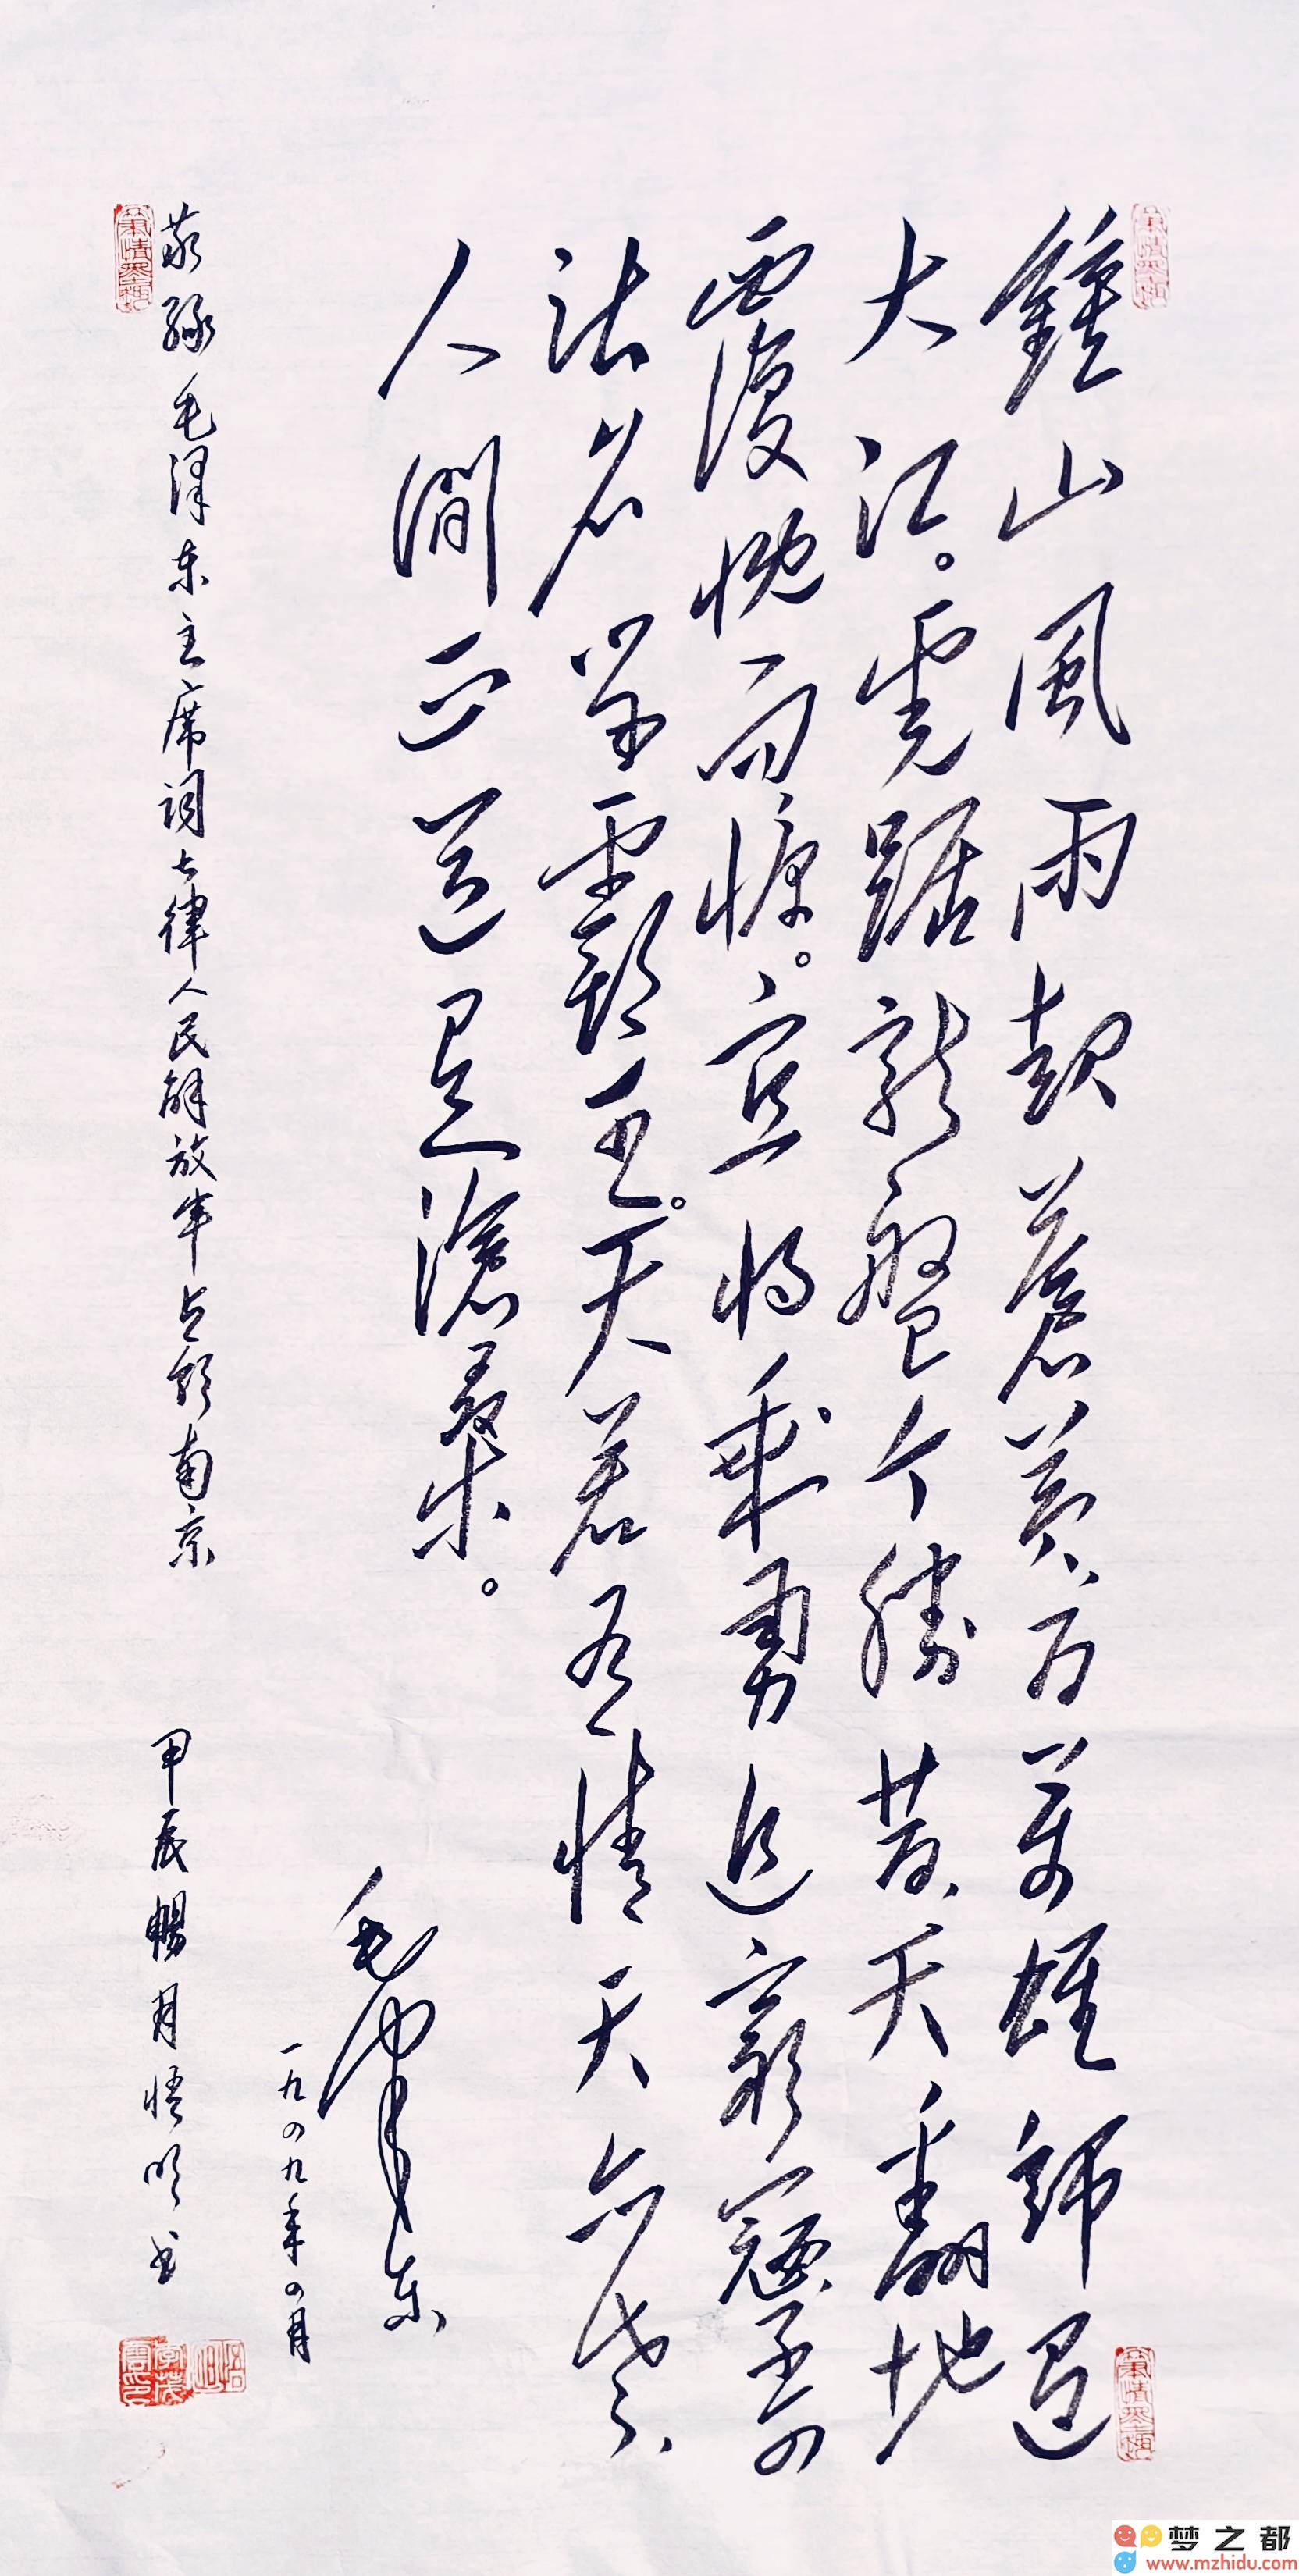 鍾山風雨起蒼黃、百萬雄師過
大江。虎踞龍盤今勝昔、天翻地
覆慨而慷。宜將剩勇追窮寇、不可
沽名學霸王。天若有情天亦老、
人間正道是滄桑。
毛泽东
一九四九年四月
敬録毛澤东主席詞七律人民解放军占领南京
甲辰暢月悟明书
梦之都
www.mzhidu.com